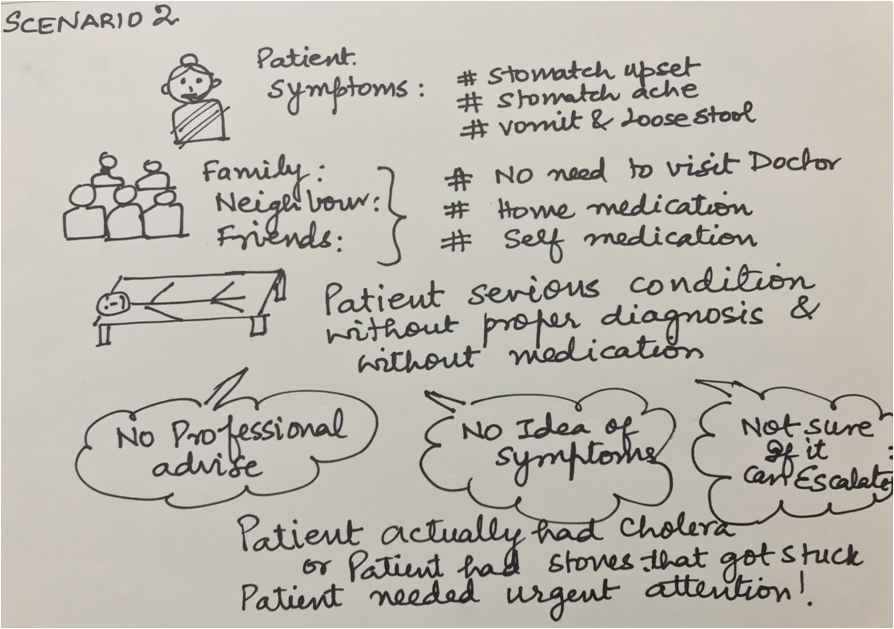 SCENARIO 2
Patient.
Symptoms :
# Stomatch upset
# Stomatch ache
# vomit & Loose stool
Family :
Neighbour :
Friends :
# NO need to visit Doctor
# Home medication
# Self medication
Patient serious condition
without proper diagnosis &
without medication
No Professional
advise
No Idea of
symptoms
Not sure
if it
can Escalate
Patient actually had Cholera
or Patient had stones that got stuck
Patient needed urgent attention!